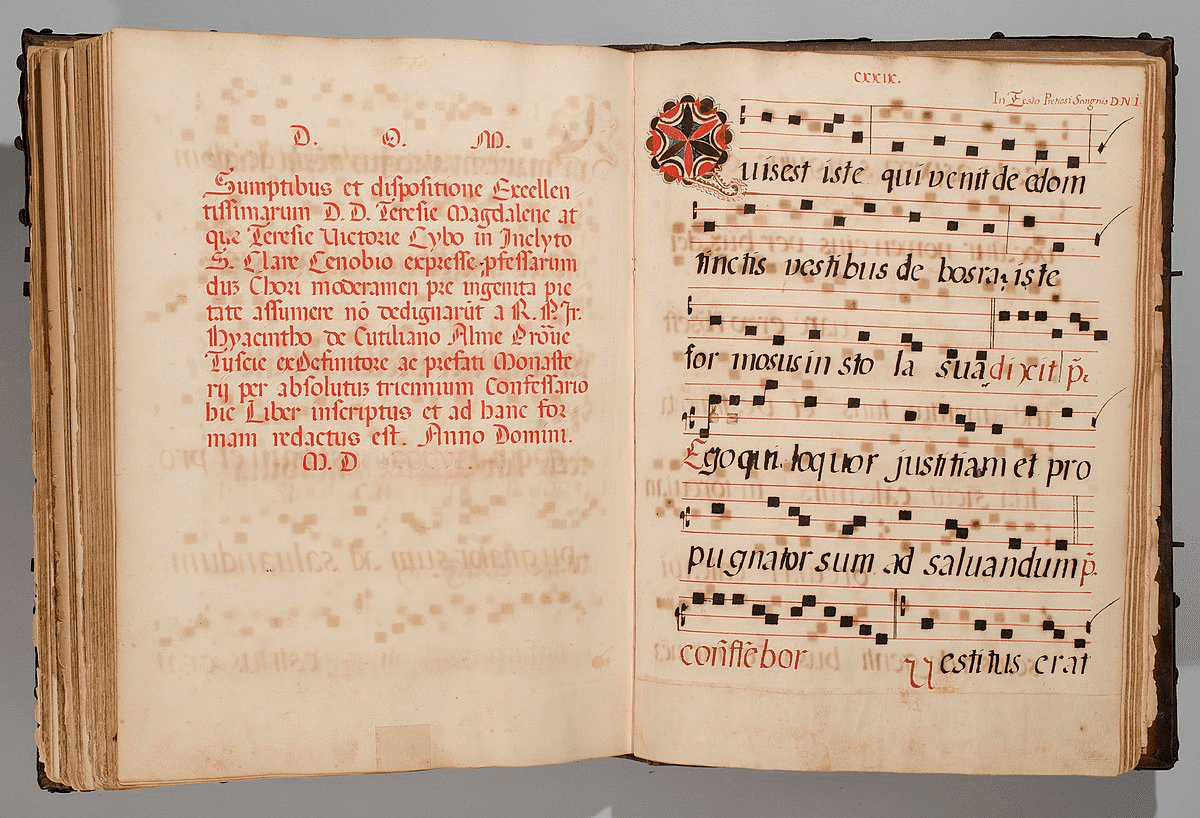 D. O. M.
Sumptibus et dispositione Excellen
tissimarum D. D. Teresie Magdalene at
que Teresie Victorie Cybo in Inclyto
S. Clare Cenobio expresse pfessarum
duz Chori moderamen pre ingenita pie
tate assumere nō dedignarūt a R. P. Fr.
Hyacintho de Cutiliano Alme Proūe
Tuscie exDefinitore ac prefati Monaste
rij per absolutuz triennium Confessario
hic Liber inscriptus et ad hanc for
mam redactus est. Anno Domini.
M. D
CXXIX.
In Festo Pretiosi Sangnis D. N. I.
Quisest iste qui venit de edom
tinctis vestibus de bosra, iste
for mosus in sto la sua dixit p̄.
Ego qui loquor justitiam et pro
pugnator sum ad saluandum p̄.
confitēbor Vestitus erat